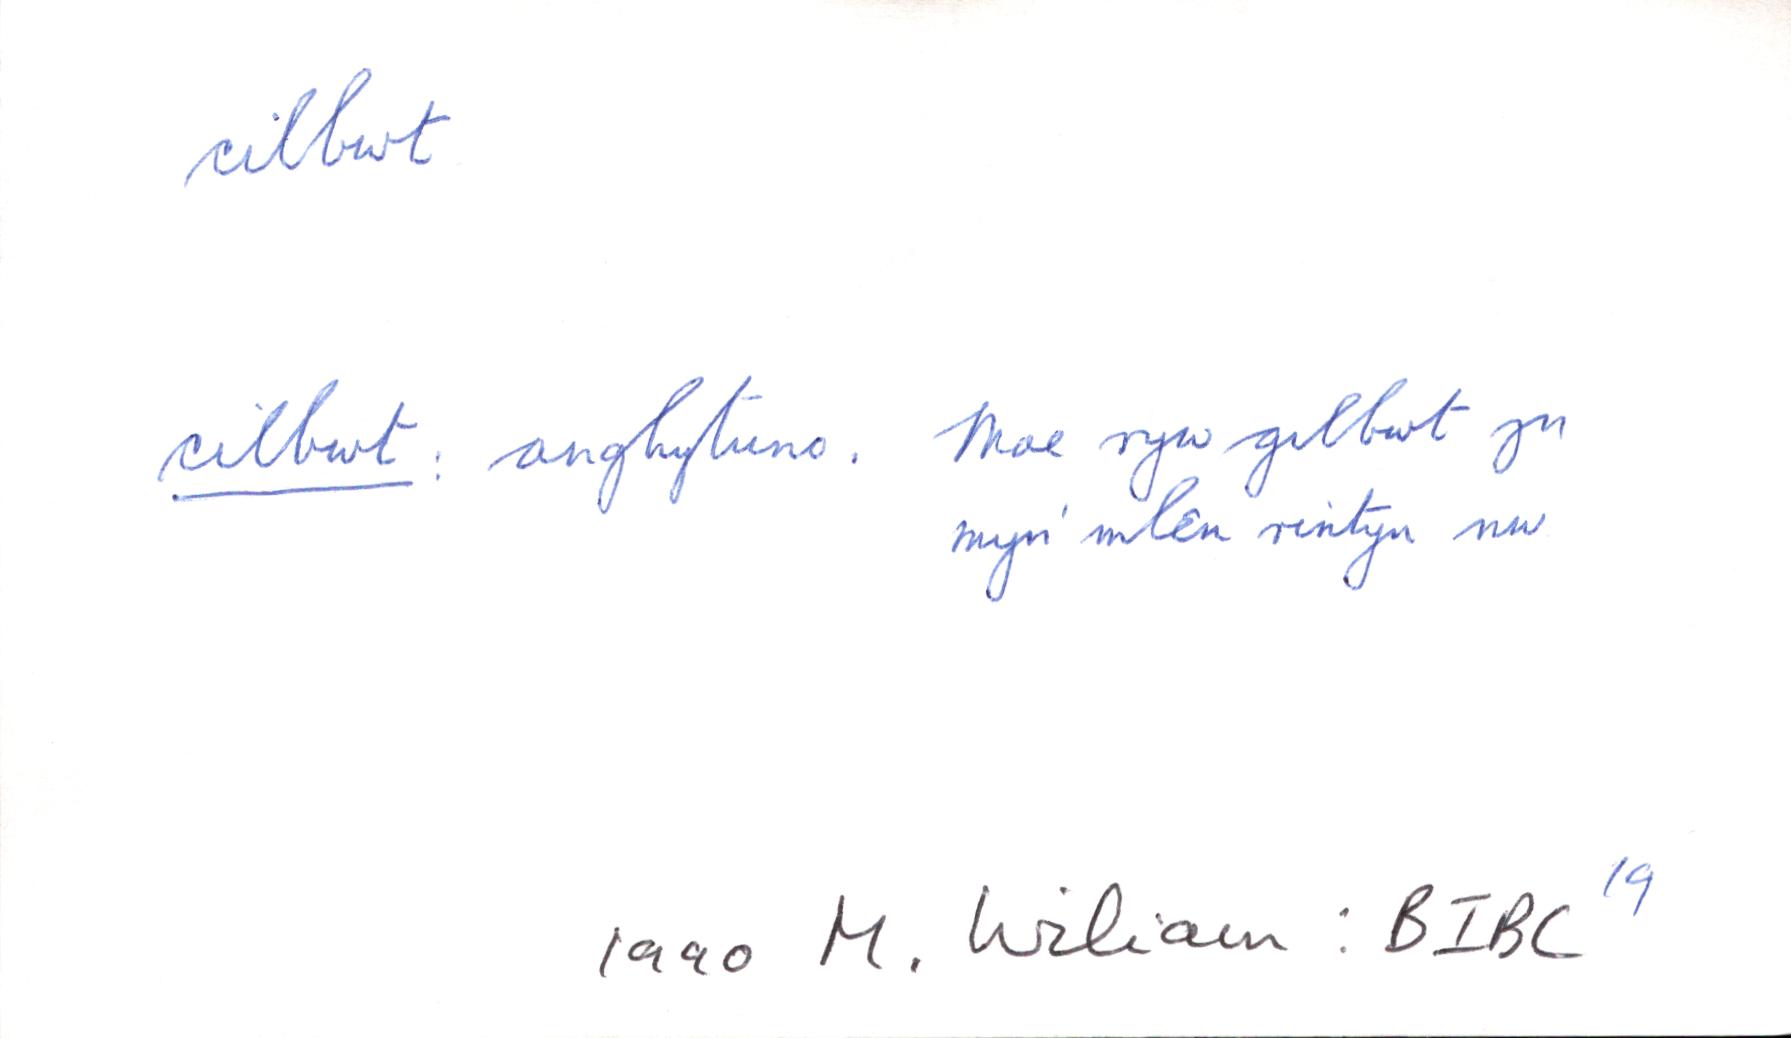 cilbwt
cilbwt: anghytuno. Mae ryw gilbwt yn
myn' mlên rintyn nw
1990 M. Wiliam: BIBC 19